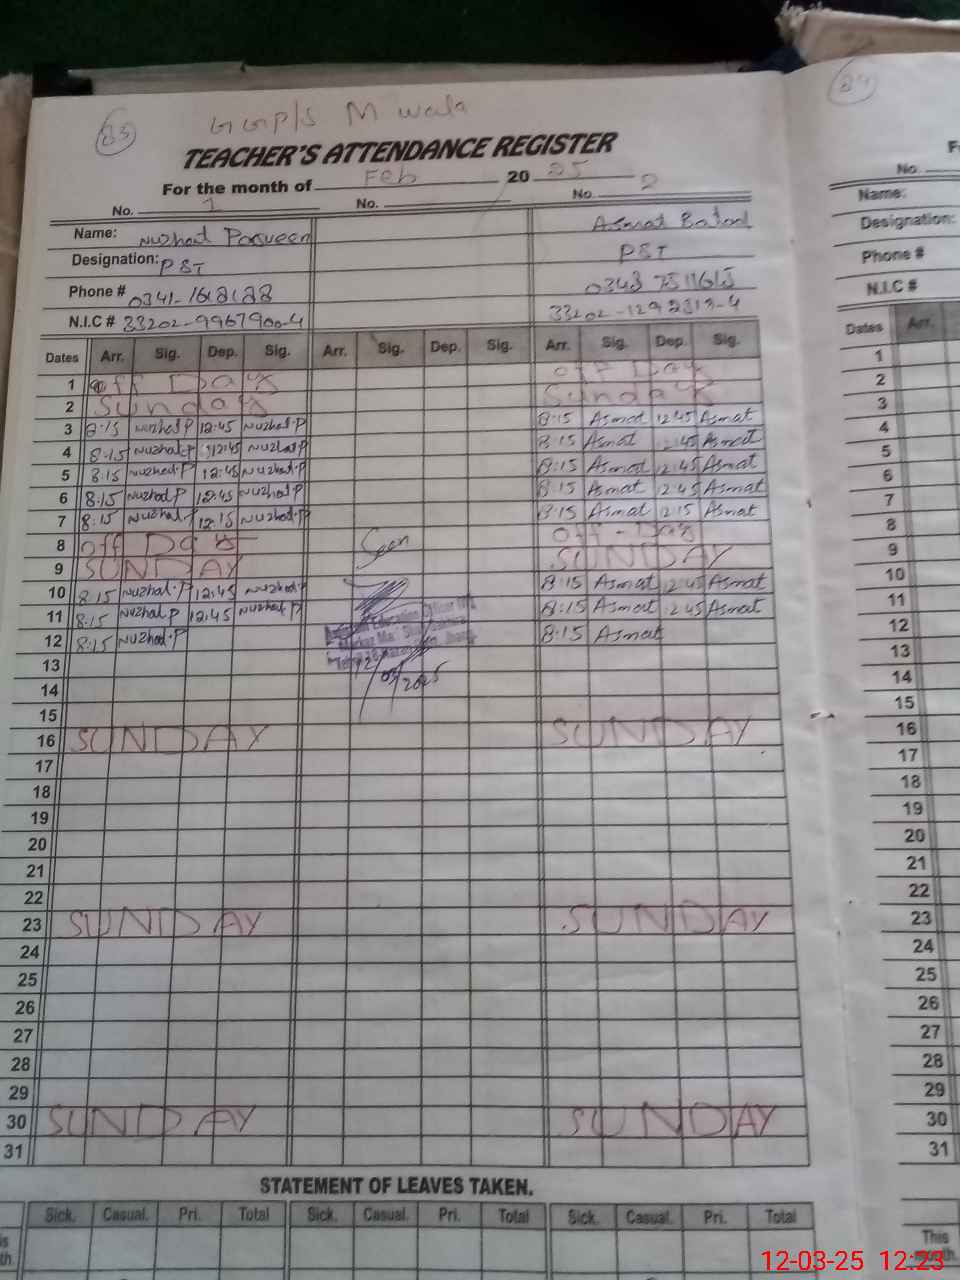 83
GGP/S M wala
84
TEACHER'S ATTENDANCE REGISTER
For the month of Feb 20 25
No. 1 No. No. 2
No.
Name: Nuzhat Parveen Asmat Batool
Name:
Designation: PST PST
Designation:
Phone # 0341-
Phone #
N.I.C # 33202-9967900-4 33202-1292313-4
N.I.C #
Dates Arr. Sig. Dep. Sig. Arr. Sig. Dep. Sig. Arr. Sig. Dep. Sig.
Dates Arr.
1 off Day off Day 1
2 Sunday Sunday 2
3 8:15 Nuzhat P 12:45 Nuzhat P 8:15 Asmat 12:45 Asmat 3
4 8:15 Nuzhat P 12:45 Nuzhat P 8:15 Asmat :45 Asmat 4
5 8:15 Nuzhat.P 12:45 Nuzhat.P 8:15 Asmat 12:45 Asmat 5
6 8:15 Nuzhat P 12:45 Nuzhat P 8:15 Asmat 12:45 Asmat 6
7 8:15 Nuzhat.P 12:15 Nuzhat.P 8:15 Asmat 12:15 Asmat 7
8 off Day Seen off - Day 8
9 SUNDAY SUNDAY 9
10 8:15 Nuzhat.P 12:45 Nuzhat.P 8:15 Asmat 12:45 Asmat 10
11 8:15 Nuzhat P 12:45 Nuzhat P Education Officer 8:15 Asmat 12:45 Asmat 11
12 8:15 Nuzhat P Markaz 8:15 Asmat 12
13 12/03/2025 13
14 14
15 15
16 SUNDAY SUNDAY 16
17 17
18 18
19 19
20 20
21 21
22 22
23 SUNDAY SUNDAY 23
24 24
25 25
26 26
27 27
28 28
29 29
30 SUNDAY SUNDAY 30
31 31
STATEMENT OF LEAVES TAKEN.
Sick. Casual. Pri. Total Sick. Casual. Pri. Total Sick. Casual. Pri. Total
This
month.
12-03-25 12:23